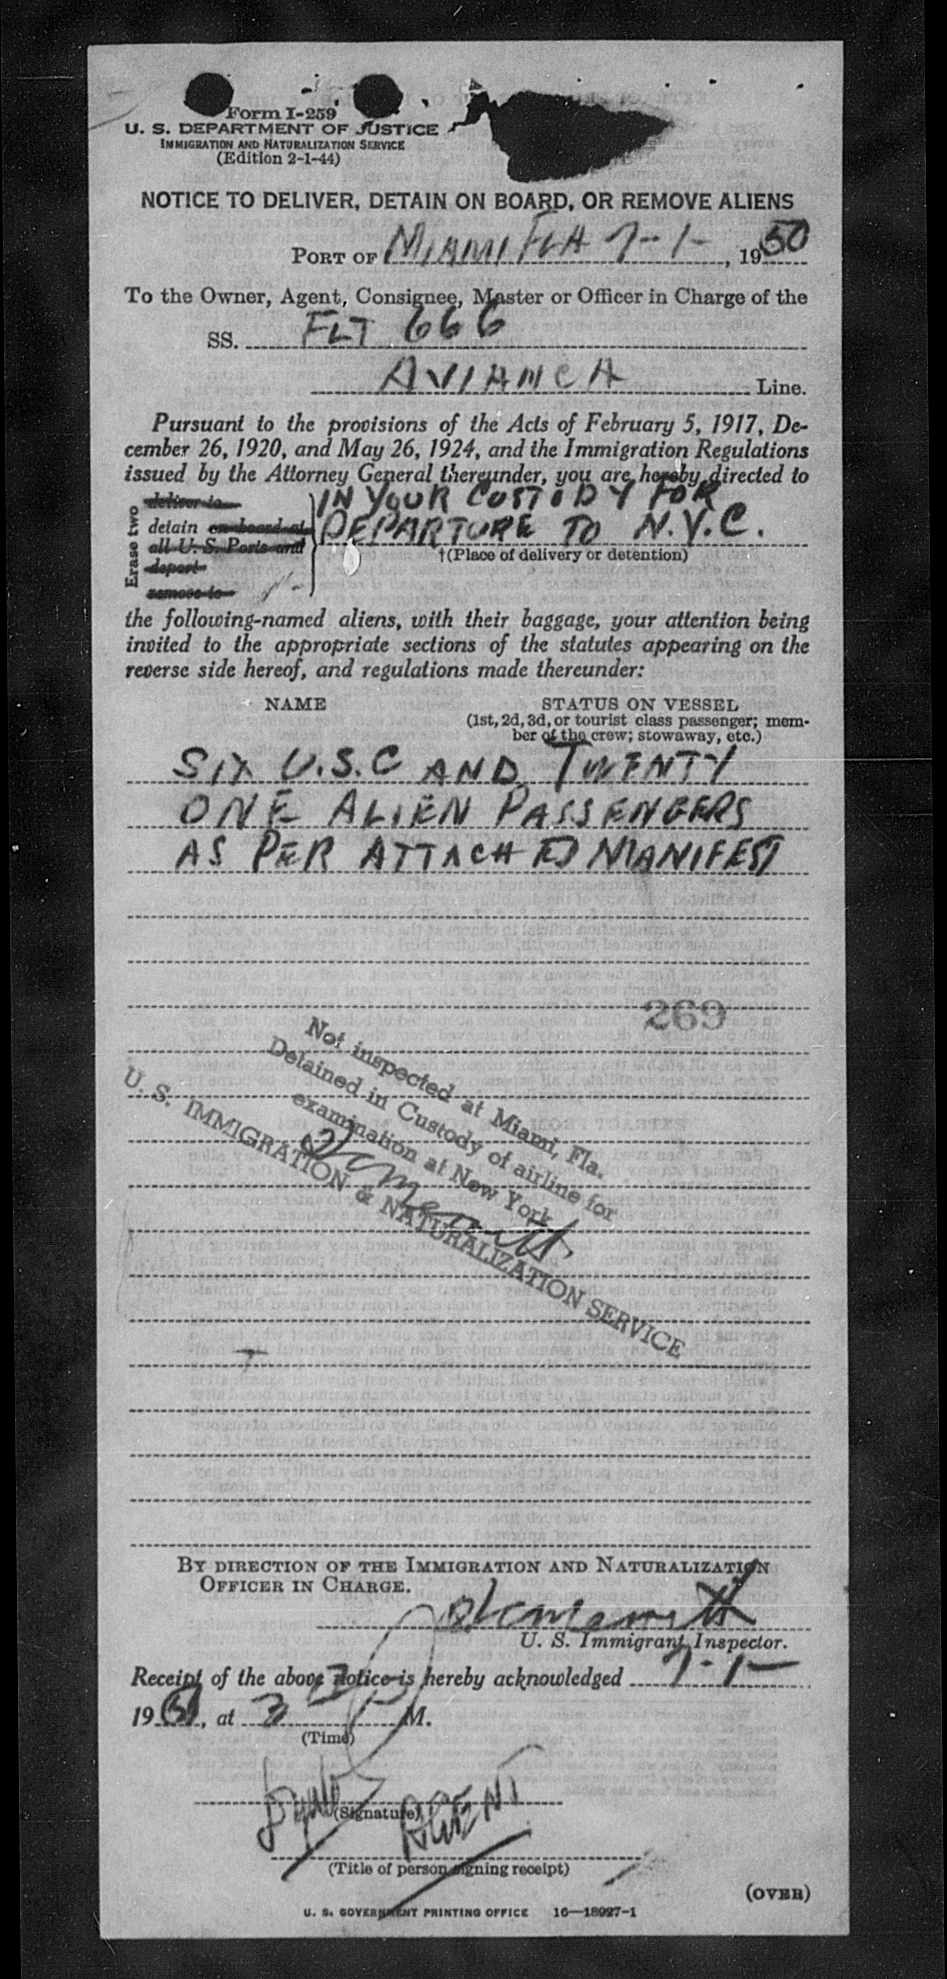 Form I-259
U. S. DEPARTMENT OF JUSTICE
IMMIGRATION AND NATURALIZATION SERVICE
(Edition 2-1-44)
NOTICE TO DELIVER, DETAIN ON BOARD, OR REMOVE ALIENS
PORT OF MIAMI FLA 7-1-, 1950
To the Owner, Agent, Consignee, Master or Officer in Charge of the
SS. FLT 666
AVIANCA Line.
Pursuant to the provisions of the Acts of February 5, 1917, De-
cember 26, 1920, and May 26, 1924, and the Immigration Regulations
issued by the Attorney General thereunder, you are hereby directed to
Erase two
deliver to
detain on board at
all U. S. Ports and
deport
remove to
IN YOUR CUSTODY FOR
DEPARTURE TO N.Y.C.
†(Place of delivery or detention)
the following-named aliens, with their baggage, your attention being
invited to the appropriate sections of the statutes appearing on the
reverse side hereof, and regulations made thereunder:
NAME STATUS ON VESSEL
(1st, 2d, 3d, or tourist class passenger; mem-
ber of the crew; stowaway, etc.)
SIX U.S.C AND TWENTY
ONE ALIEN PASSENGERS
AS PER ATTACHED MANIFEST
269
Not inspected at Miami, Fla.
Detained in Custody of airline for
examination at New York
U. S. IMMIGRATION & NATURALIZATION SERVICE
BY DIRECTION OF THE IMMIGRATION AND NATURALIZATION
OFFICER IN CHARGE.
U. S. Immigrant Inspector.
Receipt of the above notice is hereby acknowledged 7-1-
19, at M.
(Time)
(Signature)
AGENT
(Title of person signing receipt)
(OVER)
U. S. GOVERNMENT PRINTING OFFICE 16—18927-1